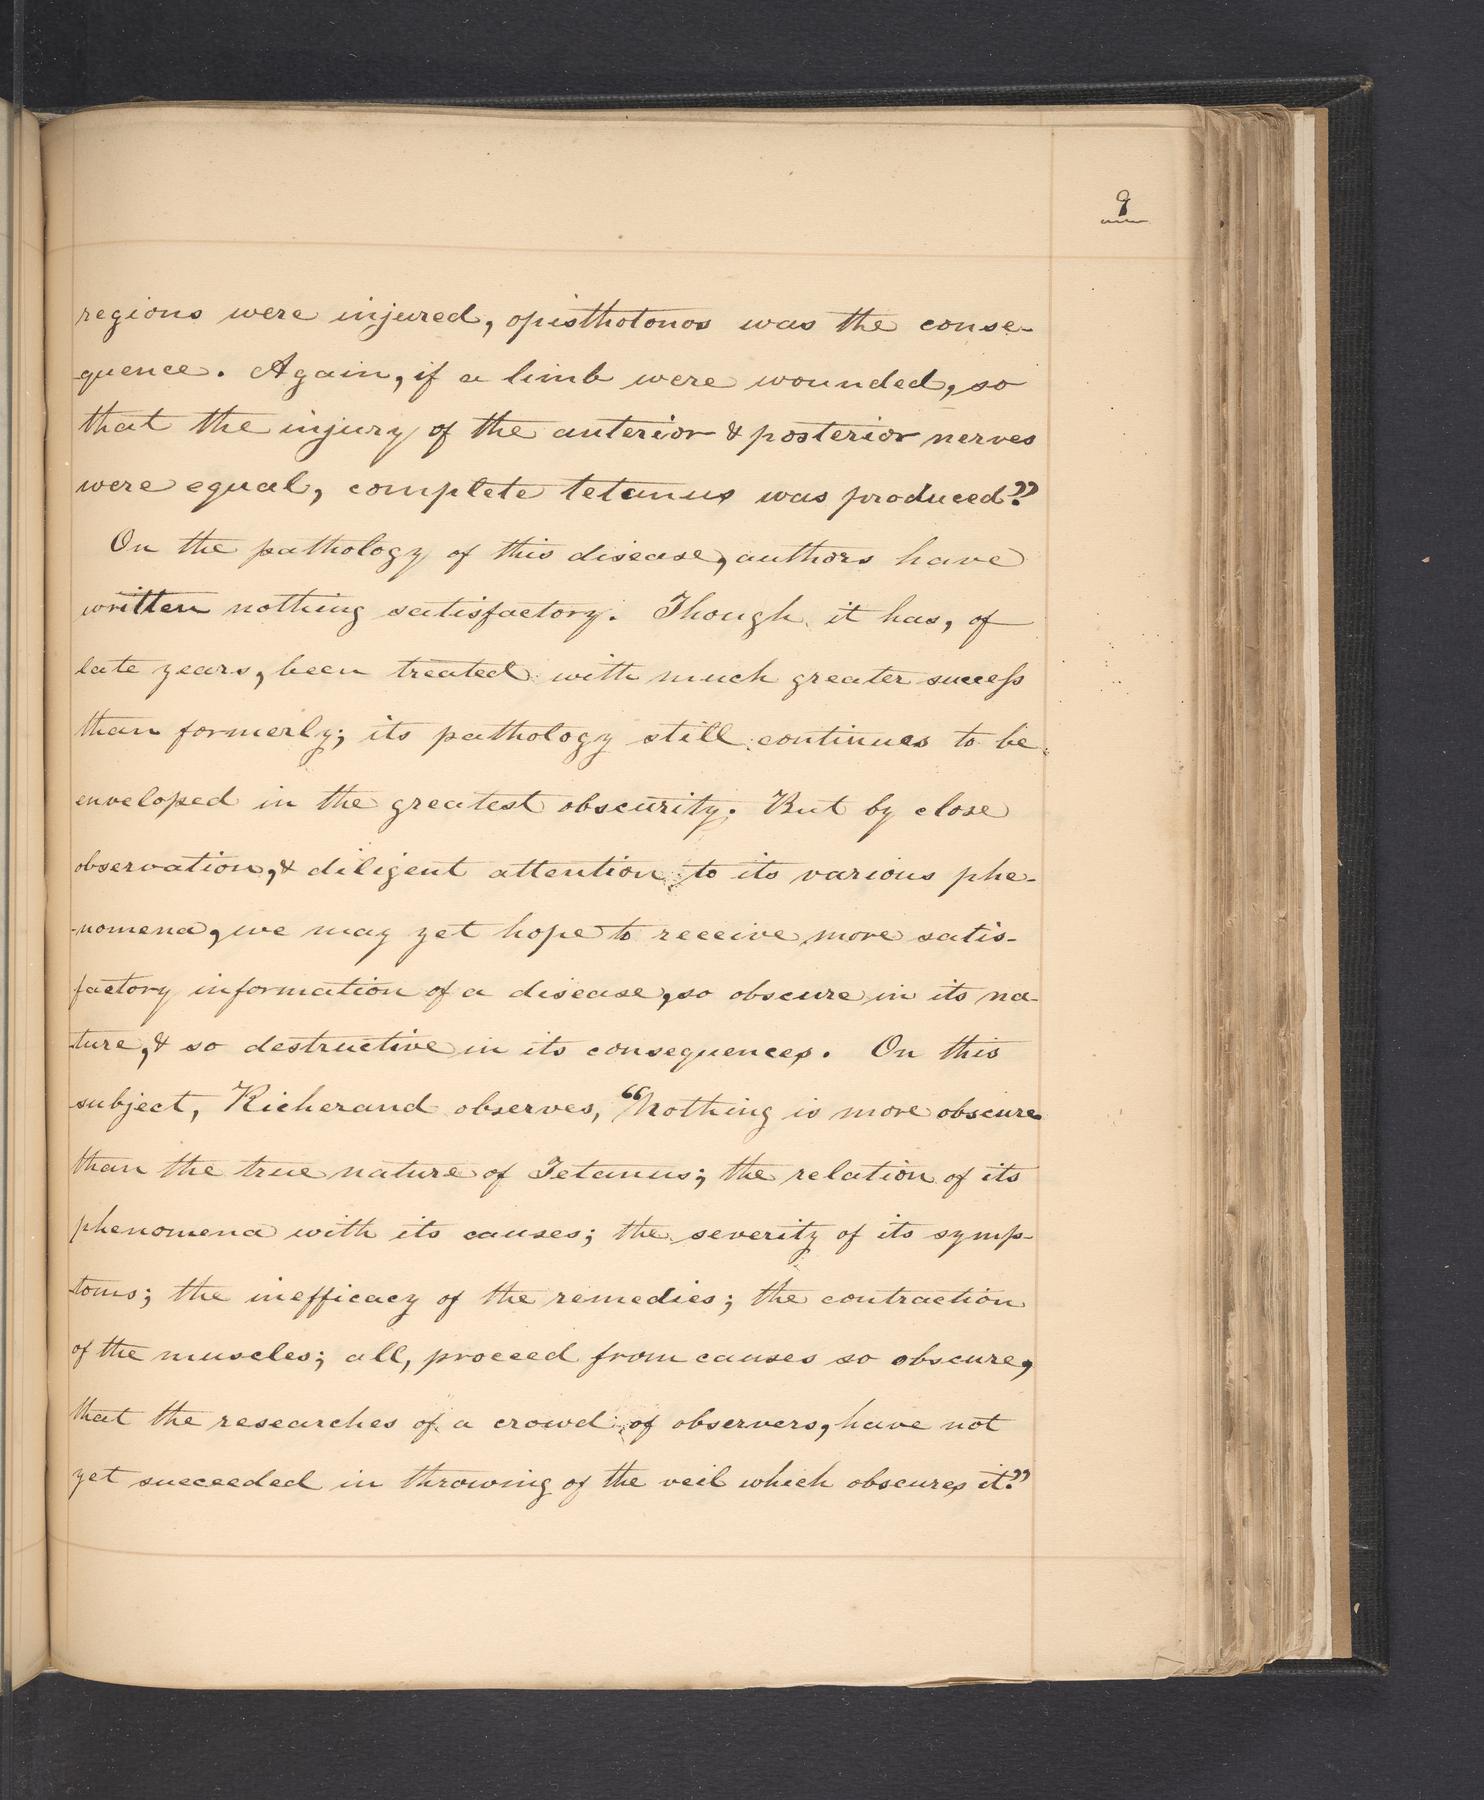 9
regions were injured, opisthotonos was the conse-
quence. Again, if a limb were wounded, so
that the injury of the anterior & posterior nerves
were equal, complete tetanus was produced."
On the pathology of this disease, authors have
written nothing satisfactory. Though it has, of
late years, been treated with much greater success
than formerly; its pathology still continues to be
enveloped in the greatest obscurity. But by close
observation, & diligent attention to its various phe-
-nomena, we may yet hope to receive more satis-
factory information of a disease, so obscure in its na-
-ture, & so destructive in its consequences. On this
subject, Richerand observes, "Nothing is more obscure
than the true nature of Tetanus; the relation of its
phenomena with its causes; the severity of its symp-
toms; the inefficacy of the remedies; the contraction
of the muscles; all, proceed from causes so obscure,
that the researches of a crowd of observers, have not
yet succeeded in throwing of the veil which obscures it."